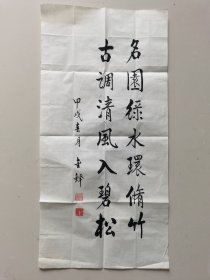 名園緑水環脩竹
古調清風入碧松
甲戌春月